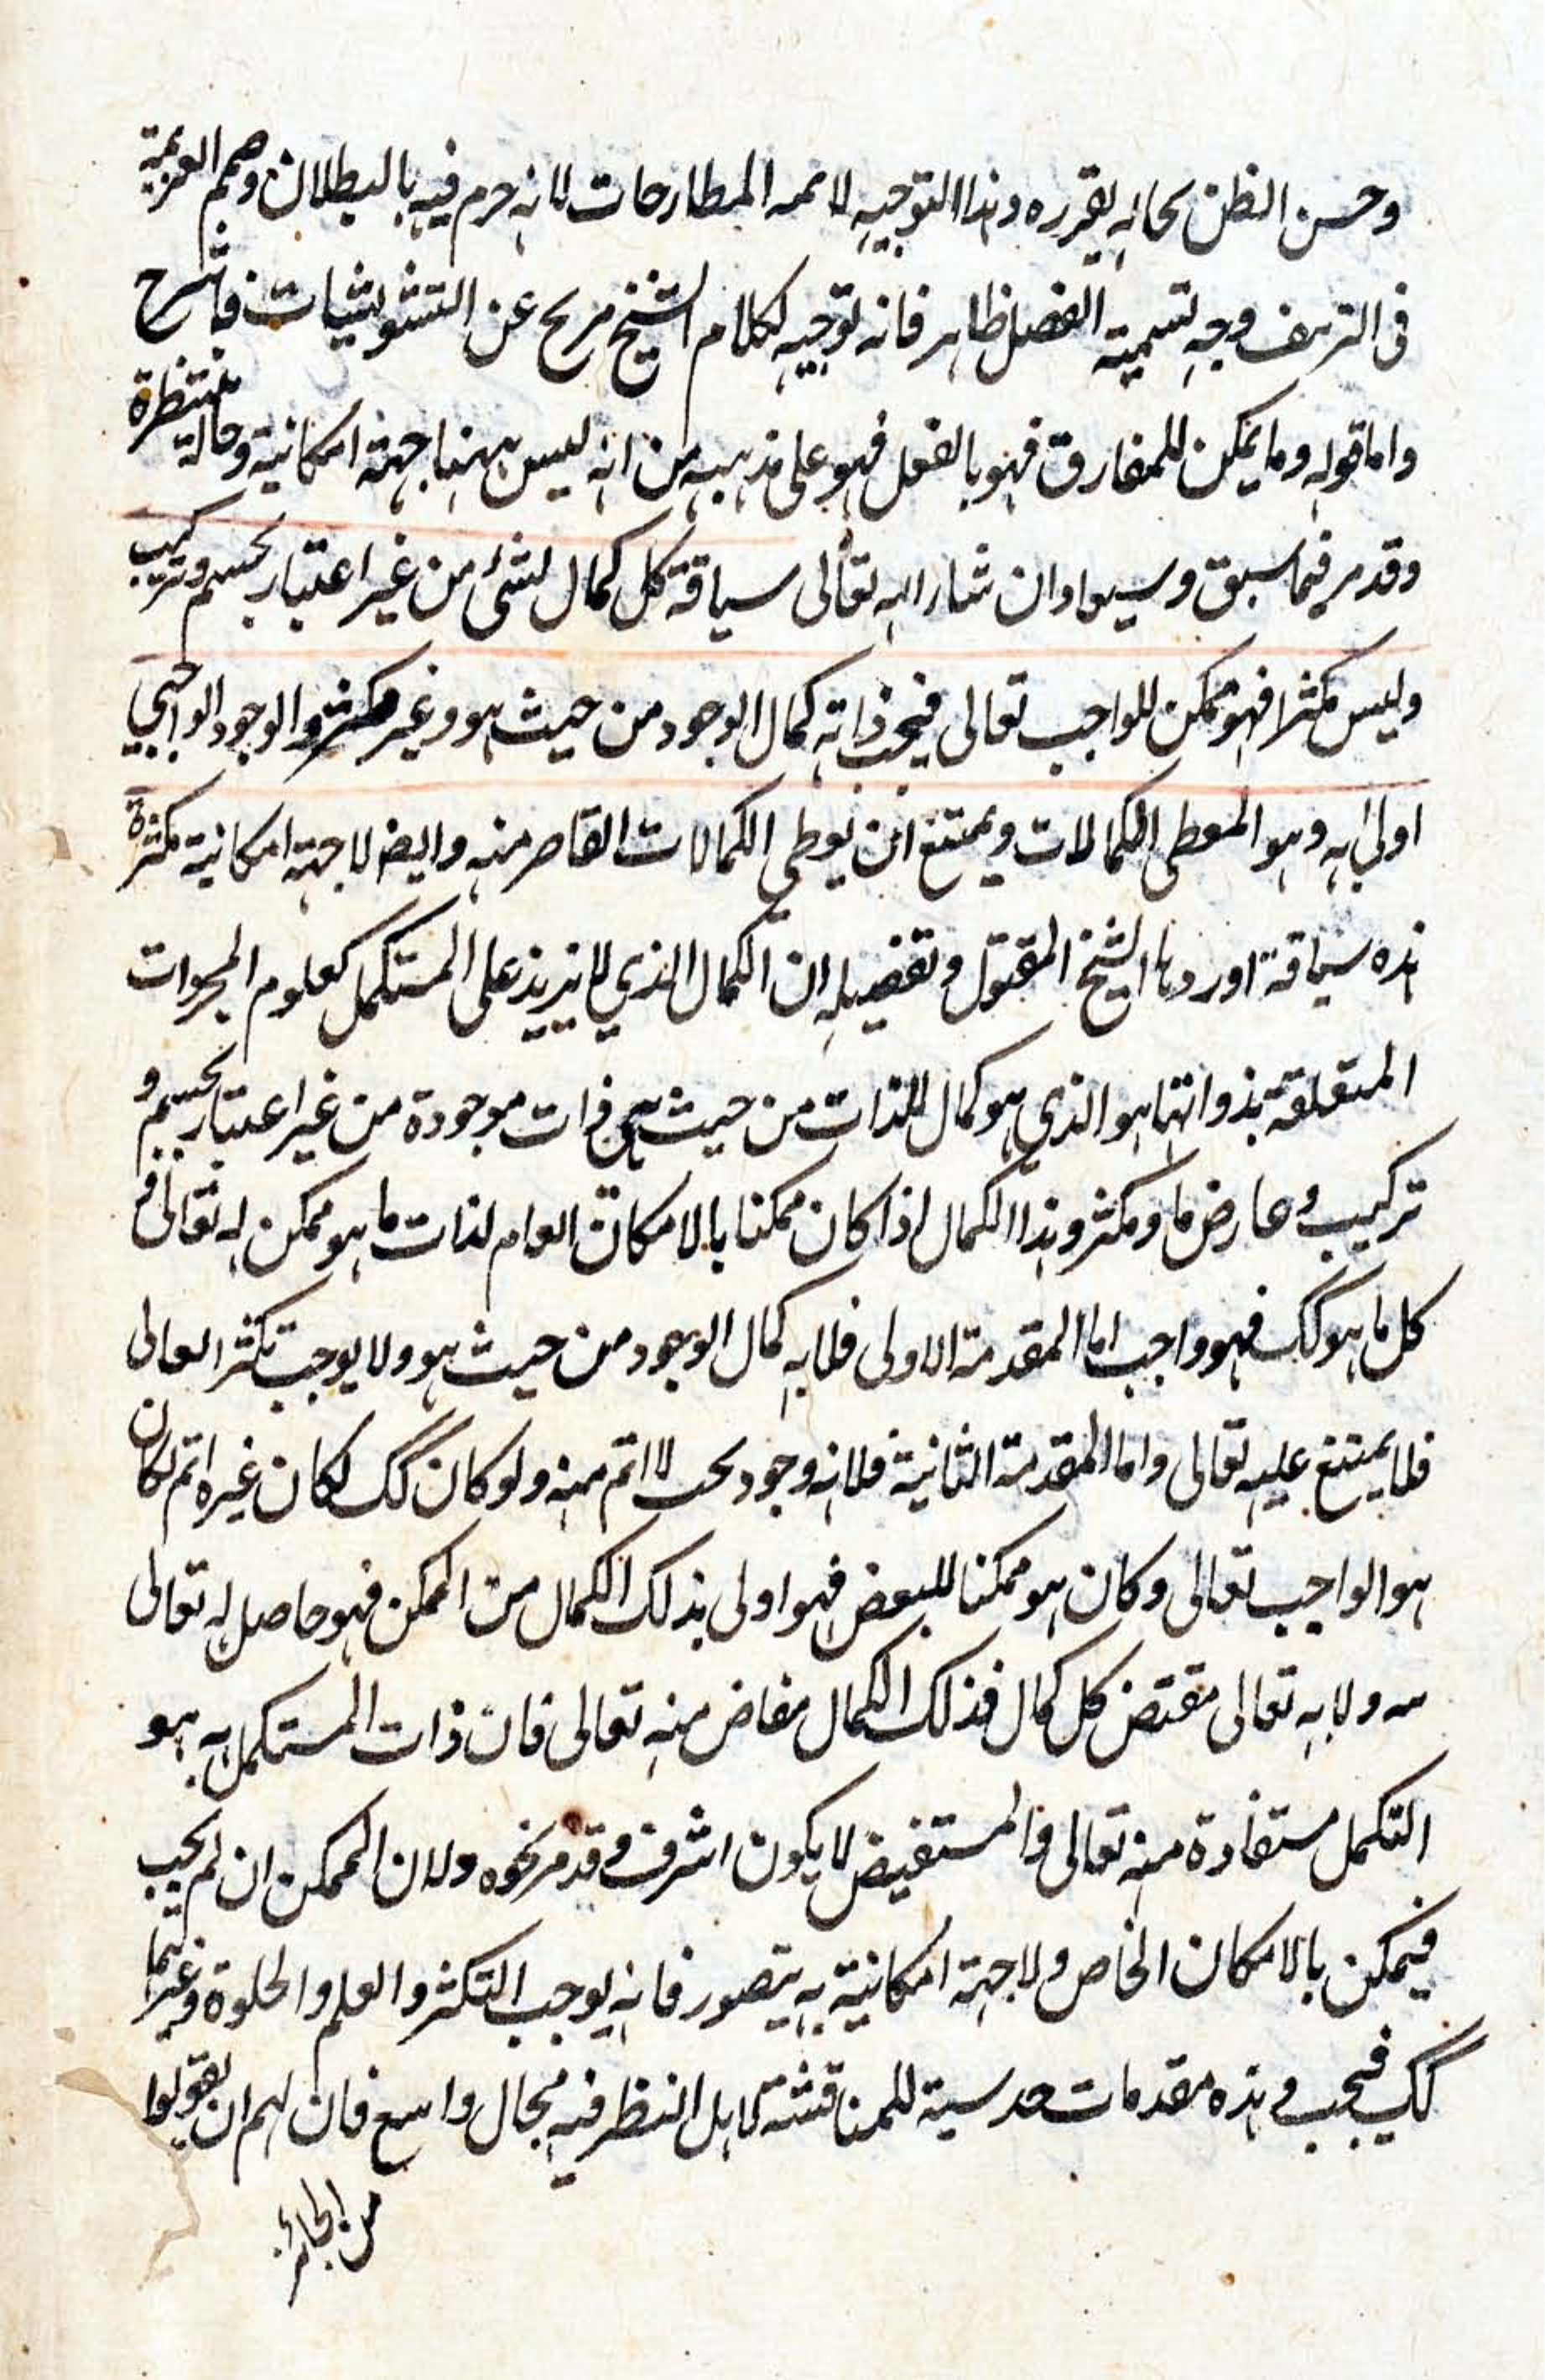 وحسن الظن بحاله يقرره وهذا التوجيه لا المطارحات لانه جزم فيه بالبطلان وصمم العزيمة
فى وجه تسمية الفصل ظاهر فانه توجيه لكلام الشيخ مريح عن التشويشات فاشرح
واما قوله وما يمكن للمفارق فهو بالفعل فهو على مذهبه من انه ليس ههنا جهة امكانية وحالة منتظرة
وقد مر فيما سبق وسيعاد ان شاء الله تعالى سياقة كل كمال لشئ من غير اعتبار تجسم وتركيب
وليس مكثرا فهو ممكن للواجب تعالى فيجب ذاته كمال الوجود من حيث هو وغير مكثر والوجود الواجبي
اولى به وهو المعطى الكمالات ويمتنع ان يعطى الكمالات القاصر منه وايضا لا جهة امكانية مكثرة
هذه سياقة اوردها الشيخ المقتول وتفصيله ان الكمال الذي لا يزيد على المستكمل كعلوم المجردات
المتعلقة بذواتها هو الذي هو كمال للذات من حيث هي ذات موجودة من غير اعتبار تجسم و
تركيب وعارض ما ومكثر وهذا الكمال اذا كان ممكنا بالامكان العام لذات ما هو ممكن له تعالى و
كل ما هو كك فهو واجب اما المقدمة الاولى فلانه كمال الوجود من حيث هو ولا يوجب تكثر العالى
فلا يمتنع عليه تعالى واما المقدمة الثانية فلانه وجود بحت لا اتم منه ولو كان كك لكان غيره اتم لكان
هو الواجب تعالى وكان هو ممكنا للبعض فهو اولى بذلك الكمال من الممكن فهو حاصل له تعالى
ولانه تعالى مقتض كل كمال فذلك الكمال مفاض منه تعالى فان ذات المستكمل به هو
التكمل مستفادة منه تعالى والمستفيض لا يكون اشرف وقد مر نحوه ولان الممكن ان لم يجب
فيمكن بالامكان الخاص ولا جهة امكانية به يتصور فانه يوجب التكثر والعلم والحلوة وغيرهما
كك فيجب وهذه مقدمات حدسية للمناقشة لاهل النظر فيه مجال واسع فان لهم ان يقولوا
من الجائز